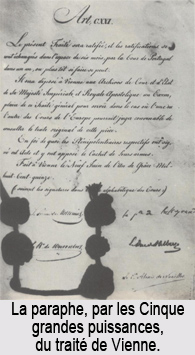 Art. CXXI.
Le présent Traité sera ratifié, et les ratifications
échangées dans l'espace de six mois, par la Cour de Portugal
dans un an, ou plus tôt si faire se peut.
Il sera déposé à Vienne aux Archives de Cour et d'Etat
de Sa Majesté Impériale et Royale Apostolique un Exem
plaire de ce Traité général pour servir dans le cas où l'une ou
l'autre des Cours de l'Europe pourrait juger convenable de
consulter le texte original de cette pièce.
En foi de quoi les Plénipotentiaires respectifs ont signé
cet acte et y ont apposé le Cachet de leurs armes.
Fait à Vienne le Neuf Juin de l'an de Grâce Mil-
huit Cent quinze.
(suivent les signatures dans l'ordre alphabétique des Cours)
La paraphe, par les Cinque
grandes puissances,
du traité de Vienne.